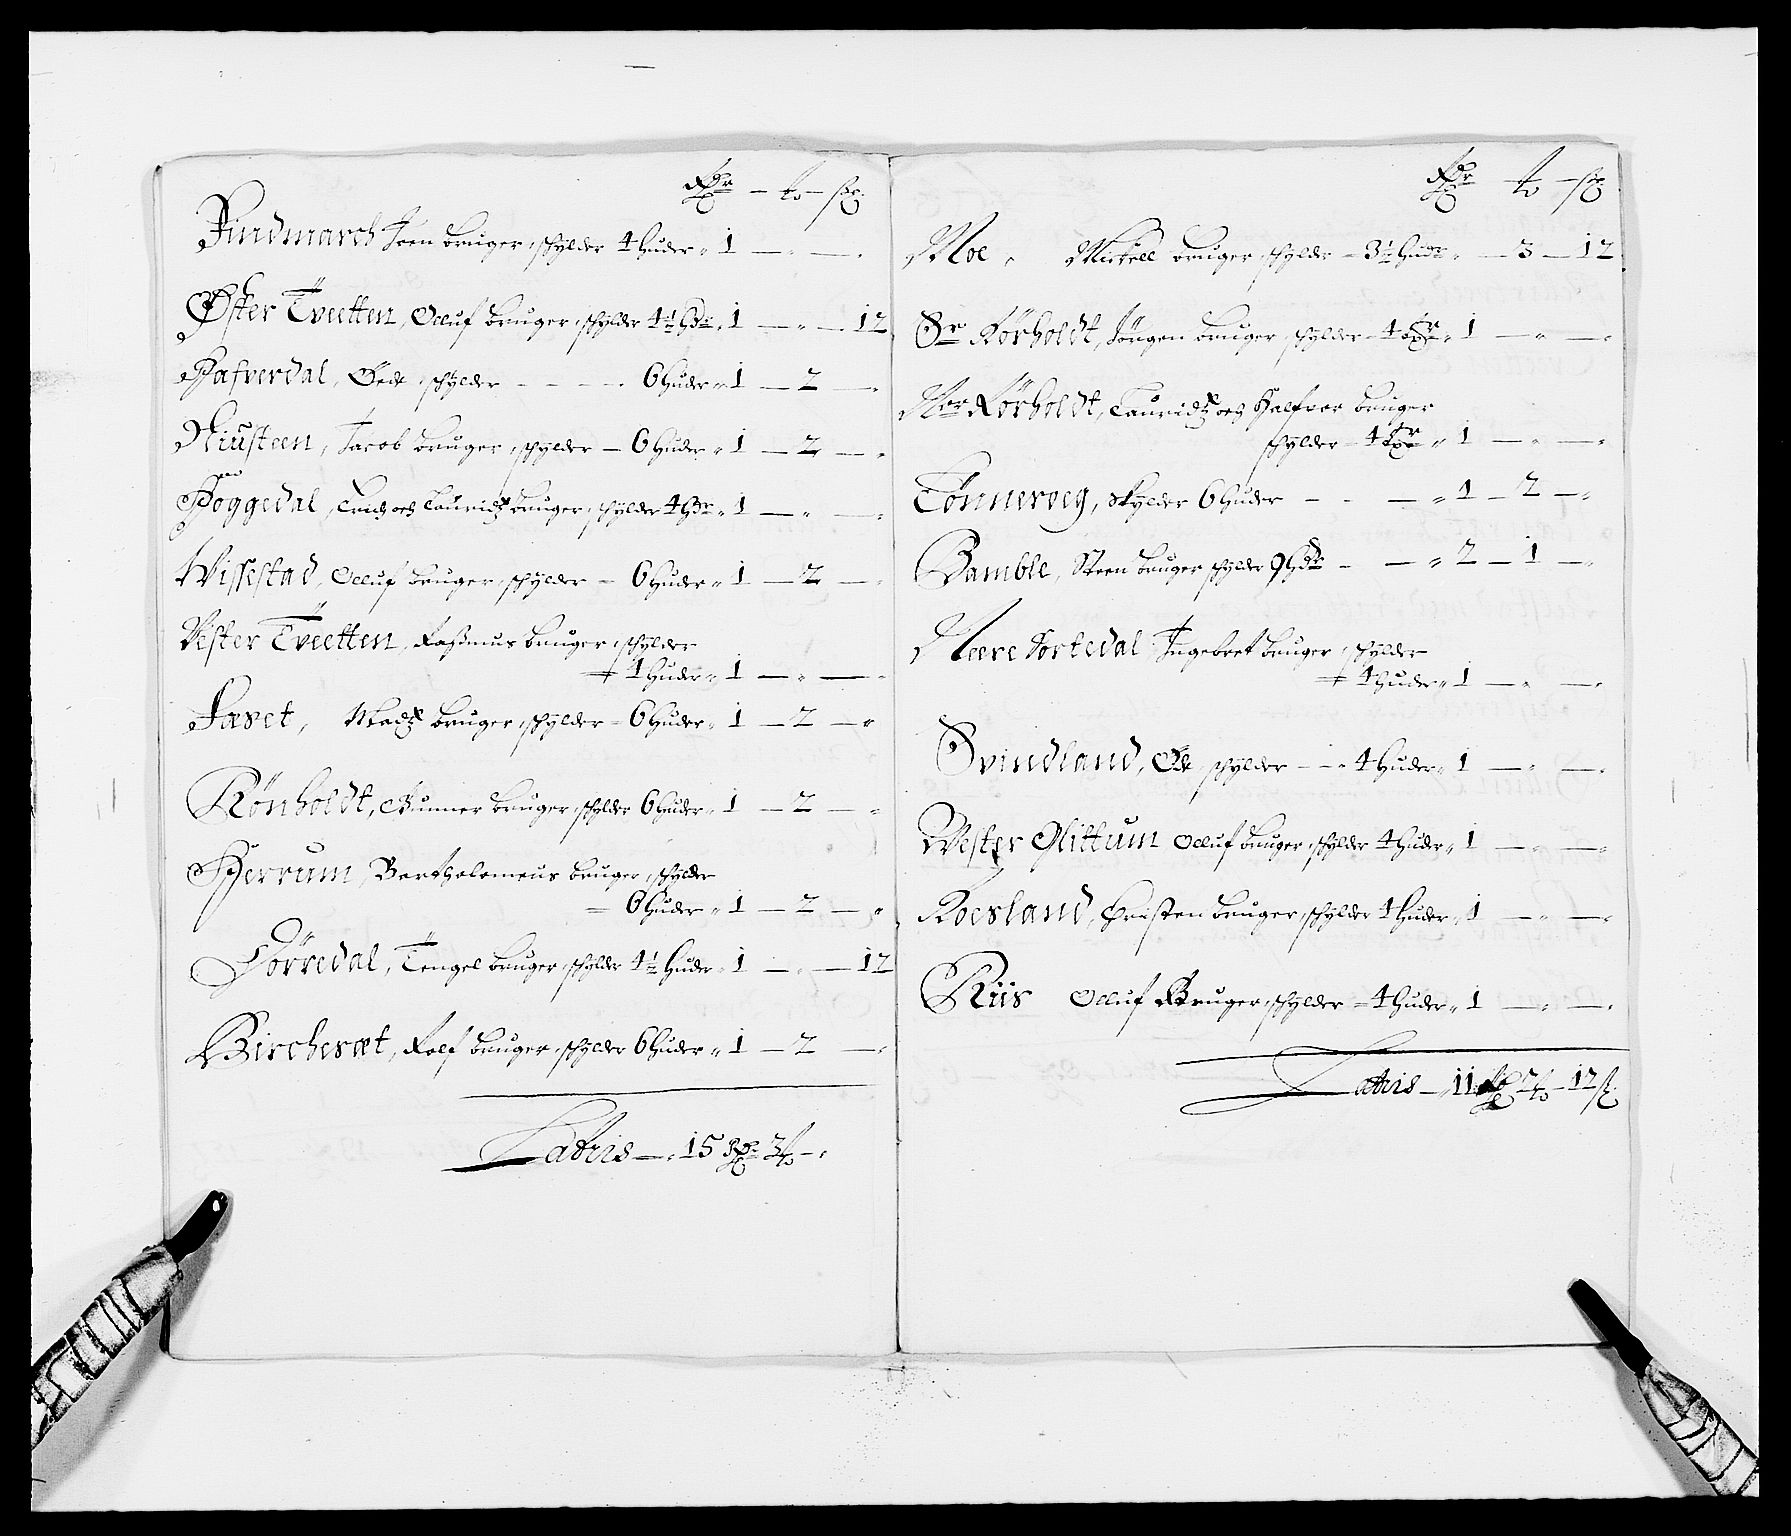 Rdr — to — sk.
Findmarch Joen bruger, schylder 4 huder „ 1 — „ — „
Øster Tveetten, Olluf bruger, schylder 4½ hdr „ 1 — „ — 12
Hafverdal, Øede schylder - - - - 6 huder „ 1 — 2 — „
Niusteen, Jacob bruger, schylder — 6 huder „ 1 — 2 — „
Høggedal, och Lauridtz bruger, schylder 4 hdr „ 1 — „ — „
Wissestad, Olluf bruger, schylder — 6 huder „ 1 — 2 — „
Vester Tveetten, Rasmus bruger, schylder
4 huder „ 1 — „ — „
Fæset, Madtz bruger, schylder — 6 huder „ 1 — 2 — „
Rønholdt, Gunner bruger, schylder 6 huder „ 1 — 2 — „
Herrum, Bartholomeus bruger, schylder
— 6 huder „ 1 — 2 — „
Tørredal, Tengel bruger, schylder 4½ huder „ 1 — „ — 12
Bircheset, Rolf bruger, schylder 6 huder „ 1 — 2 — „
Latris — „ 15 Rdr 3 to — „
Rdr — to — sk
Moe, Mickell bruger, schylder — 3½ hudr „ — 3 — 12
Sr Rørholdt, Jörgen bruger, schylder — 4 „ 1 — „ — „
Nor Rørholdt, Lauridtz och Halfvor bruger
schylder — 4 „ 1 — „ — „
Tønnerveg, skylder 6 huder - - — „ 1 — 2 — „
Bamble, Steen bruger schylder 9 hdr - — „ 2 — 1 — „
Neere Sortedal Ingebret bruger, schylder
4 huder „ 1 — „ — „
Svindland, Øde schylder — „ 4 huder „ 1 — „ — „
Wester Glittum Olluf bruger, schylder 4 huder „ 1 — „ — „
Roesland, Christen bruger, schylder 4 huder „ 1 — „ — „
Riis Olluf Bruger, schylder — 4 huder „ 1 — „ — „
Latris — „ 11 Rdr 2 to — 12 sk